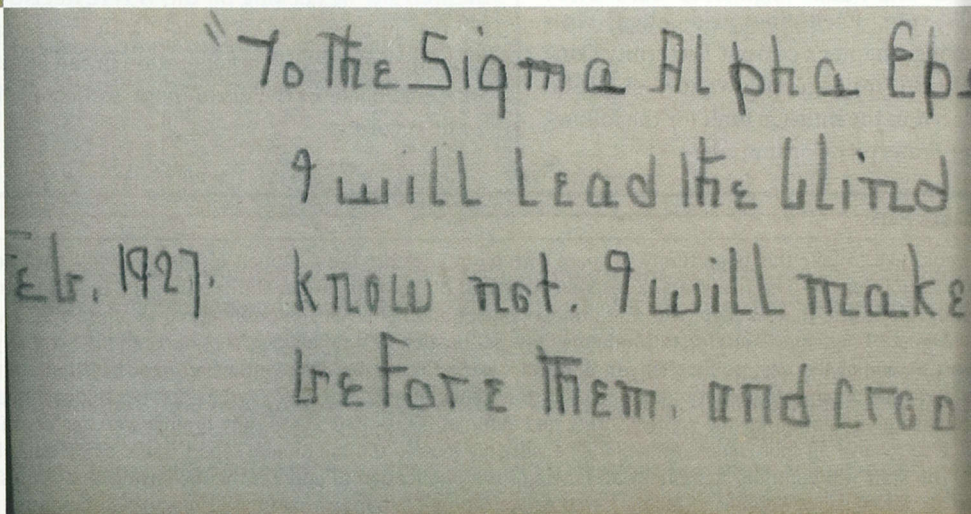 "To the Sigma Alpha Ep
I will lead the blind
Feb. 1927. know not. I will make
before them, and croo